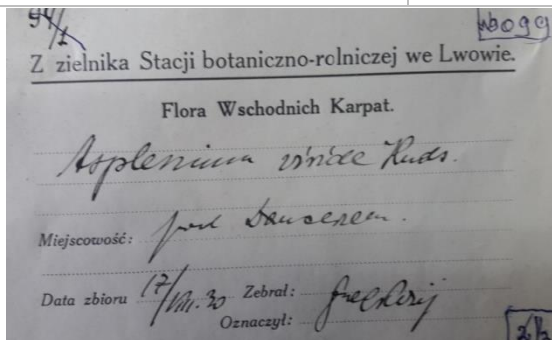 94/1
Z zielnika Stacji botaniczno-rolniczej we Lwowie.
Flora Wschodnich Karpat.
Asplenium viride Huds.
Miejscowość: pod
Data zbioru 17/VIII. 30 Zebrał:
Oznaczył: